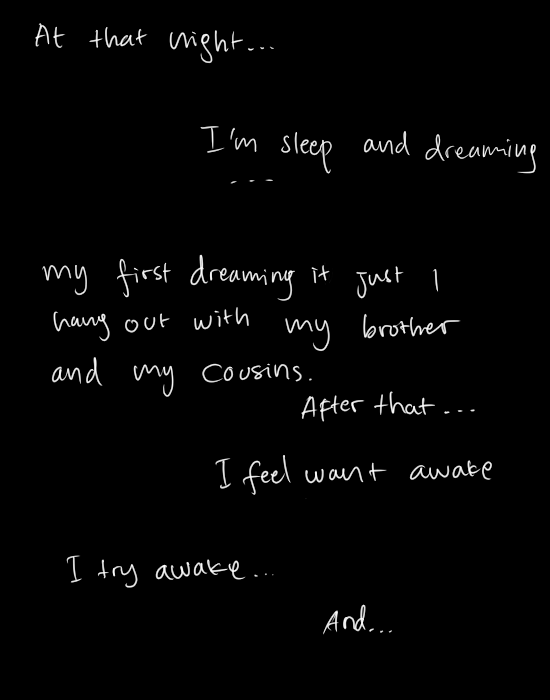 At that night...
I'm sleep and dreaming
...
my first dreaming it just I
hang out with my brother
and my cousins.
After that...
I feel want awake
I try awake...
And...